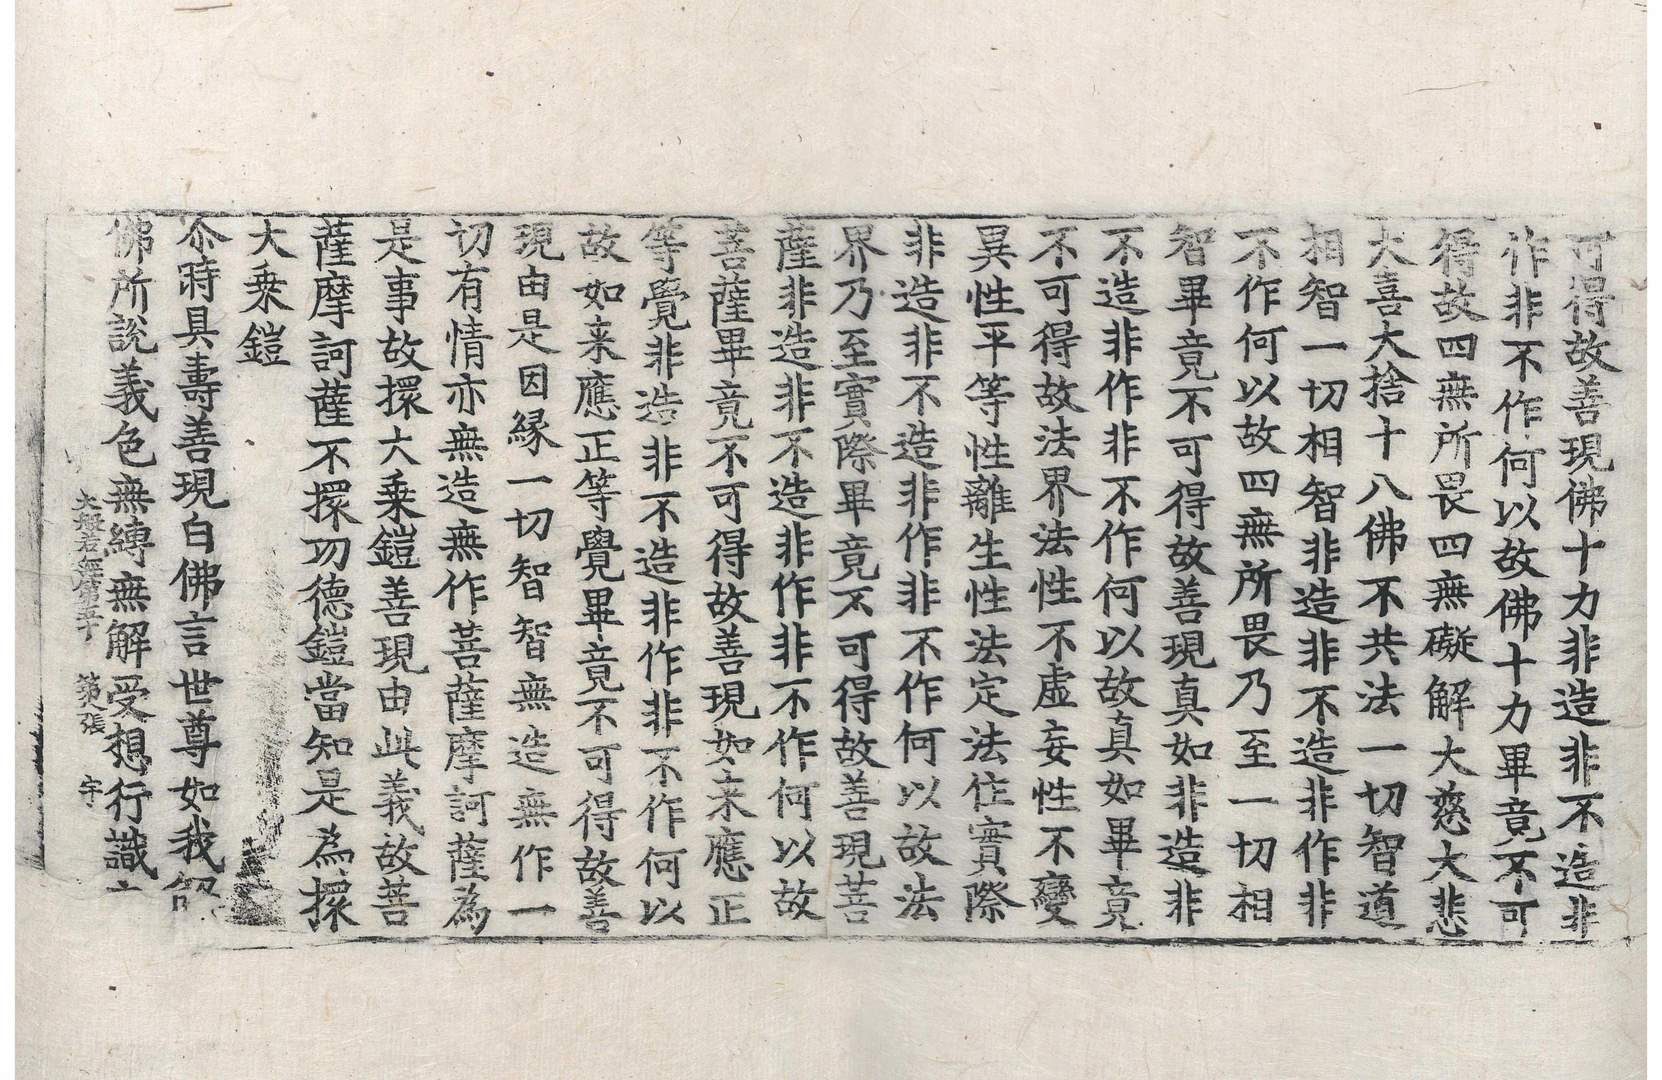 可得故善現佛十力非造非不造非
作非不作何以故佛十力畢竟不可
得故四無所畏四無礙解大慈大悲
大喜大捨十八佛不共法一切智道
相智一切相智非造非不造非作非
不作何以故四無所畏乃至一切相
智畢竟不可得故善現真如非造非
不造非作非不作何以故真如畢竟
不可得故法界法性不虛妄性不變
異性平等性離生性法定法住實際
非造非不造非作非不作何以故法
界乃至實際畢竟不可得故善現菩
薩非造非不造非作非不作何以故
菩薩畢竟不可得故善現如来應正
等覺非造非不造非作非不作何以
故如来應正等覺畢竟不可得故善
現由是因緣一切智智無造無作一
切有情亦無造無作菩薩摩訶薩為
是事故擐大乗鎧善現由此義故菩
薩摩訶薩不擐功德鎧當知是為擐
大乗鎧
尒時具壽善現白佛言世尊如我解
佛所說義色無縛無解受想行識
大般若經第五十 第 張 宇